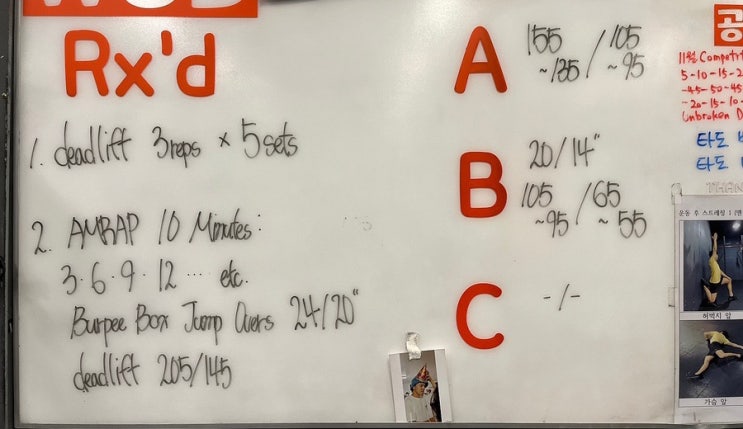 WOD
Rx'd
1. deadlift 3reps × 5sets
2. AMRAP 10 Minutes:
3·6·9·12 ···· etc.
Burpee Box Jump Overs 24/20"
deadlift 205/145
A
155 / 105
~135 ~95
B
20/14"
105 / 65
~95 ~55
C
-/-
공
11월 Competit
5-10-15-2
-45-50-45
-20-15-10-
Unbroken D
타도
타도
운동 후 스트레칭 1
허벅지 앞
가슴 앞